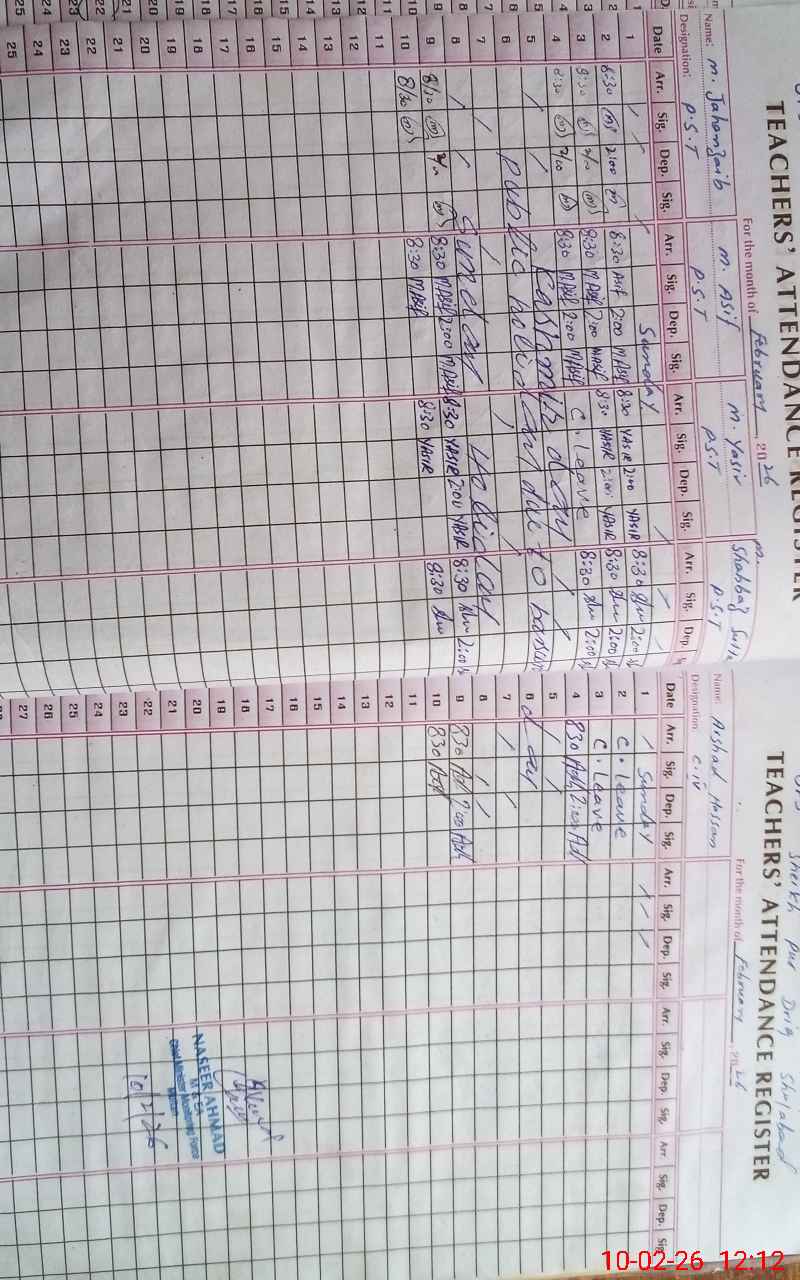 TEACHERS' ATTENDANCE REGISTER
For the month of February, 2026
Name: M. Jahanzaib M. Asif M. Yasir M. Shahbaz
Designation: P.S.T P.S.T P.S.T P.S.T
Date Arr. Sig. Dep. Sig. Arr. Sig. Dep. Sig. Arr. Sig. Dep. Sig. Arr. Sig. Dep.
1 Sunday
2 8:30 2:00 8:30 Asif 2:00 M Asif 8:30 YASIR 2:00 YASIR 8:30 2:00
3 8:30 M Asif 2:00 M Asif 8:30 YASIR 2:00 YASIR 8:30 2:00
4 8:30 2/00 8:30 M Asif 2:00 M Asif C. Leave 8:30 2:00
5 Kashmir day
6 Public holiday due to
7
8 Sunday Holiday
9 8/30 8:30 M Asif 2:00 M Asif 8:30 YASIR 2:00 YASIR 8:30 2:00
10 8/30 8:30 M Asif 8:30 YASIR 8:30
11
12
13
14
15
16
17
18
19
20
21
22
23
24
25
Sheikh Pur Drig Shujabad
TEACHERS' ATTENDANCE REGISTER
For the month of February, 2026
Name: Arshad Hassan
Designation: C.iv
Date Arr. Sig. Dep. Sig. Arr. Sig. Dep. Sig. Arr. Sig. Dep. Sig. Arr. Sig. Dep. Sig.
1 Sunday
2 C. Leave
3 C. Leave
4 830 2:00
5
6 day
7
8
9 830 2:00
10 830
11
12
13
14
15
16
17
18
19
20
21
22
23
24
25
26
27
NASEER AHMAD
M & EA
Chief Minister Monitoring Force
Multan
10/2/26
10-02-26 12:12